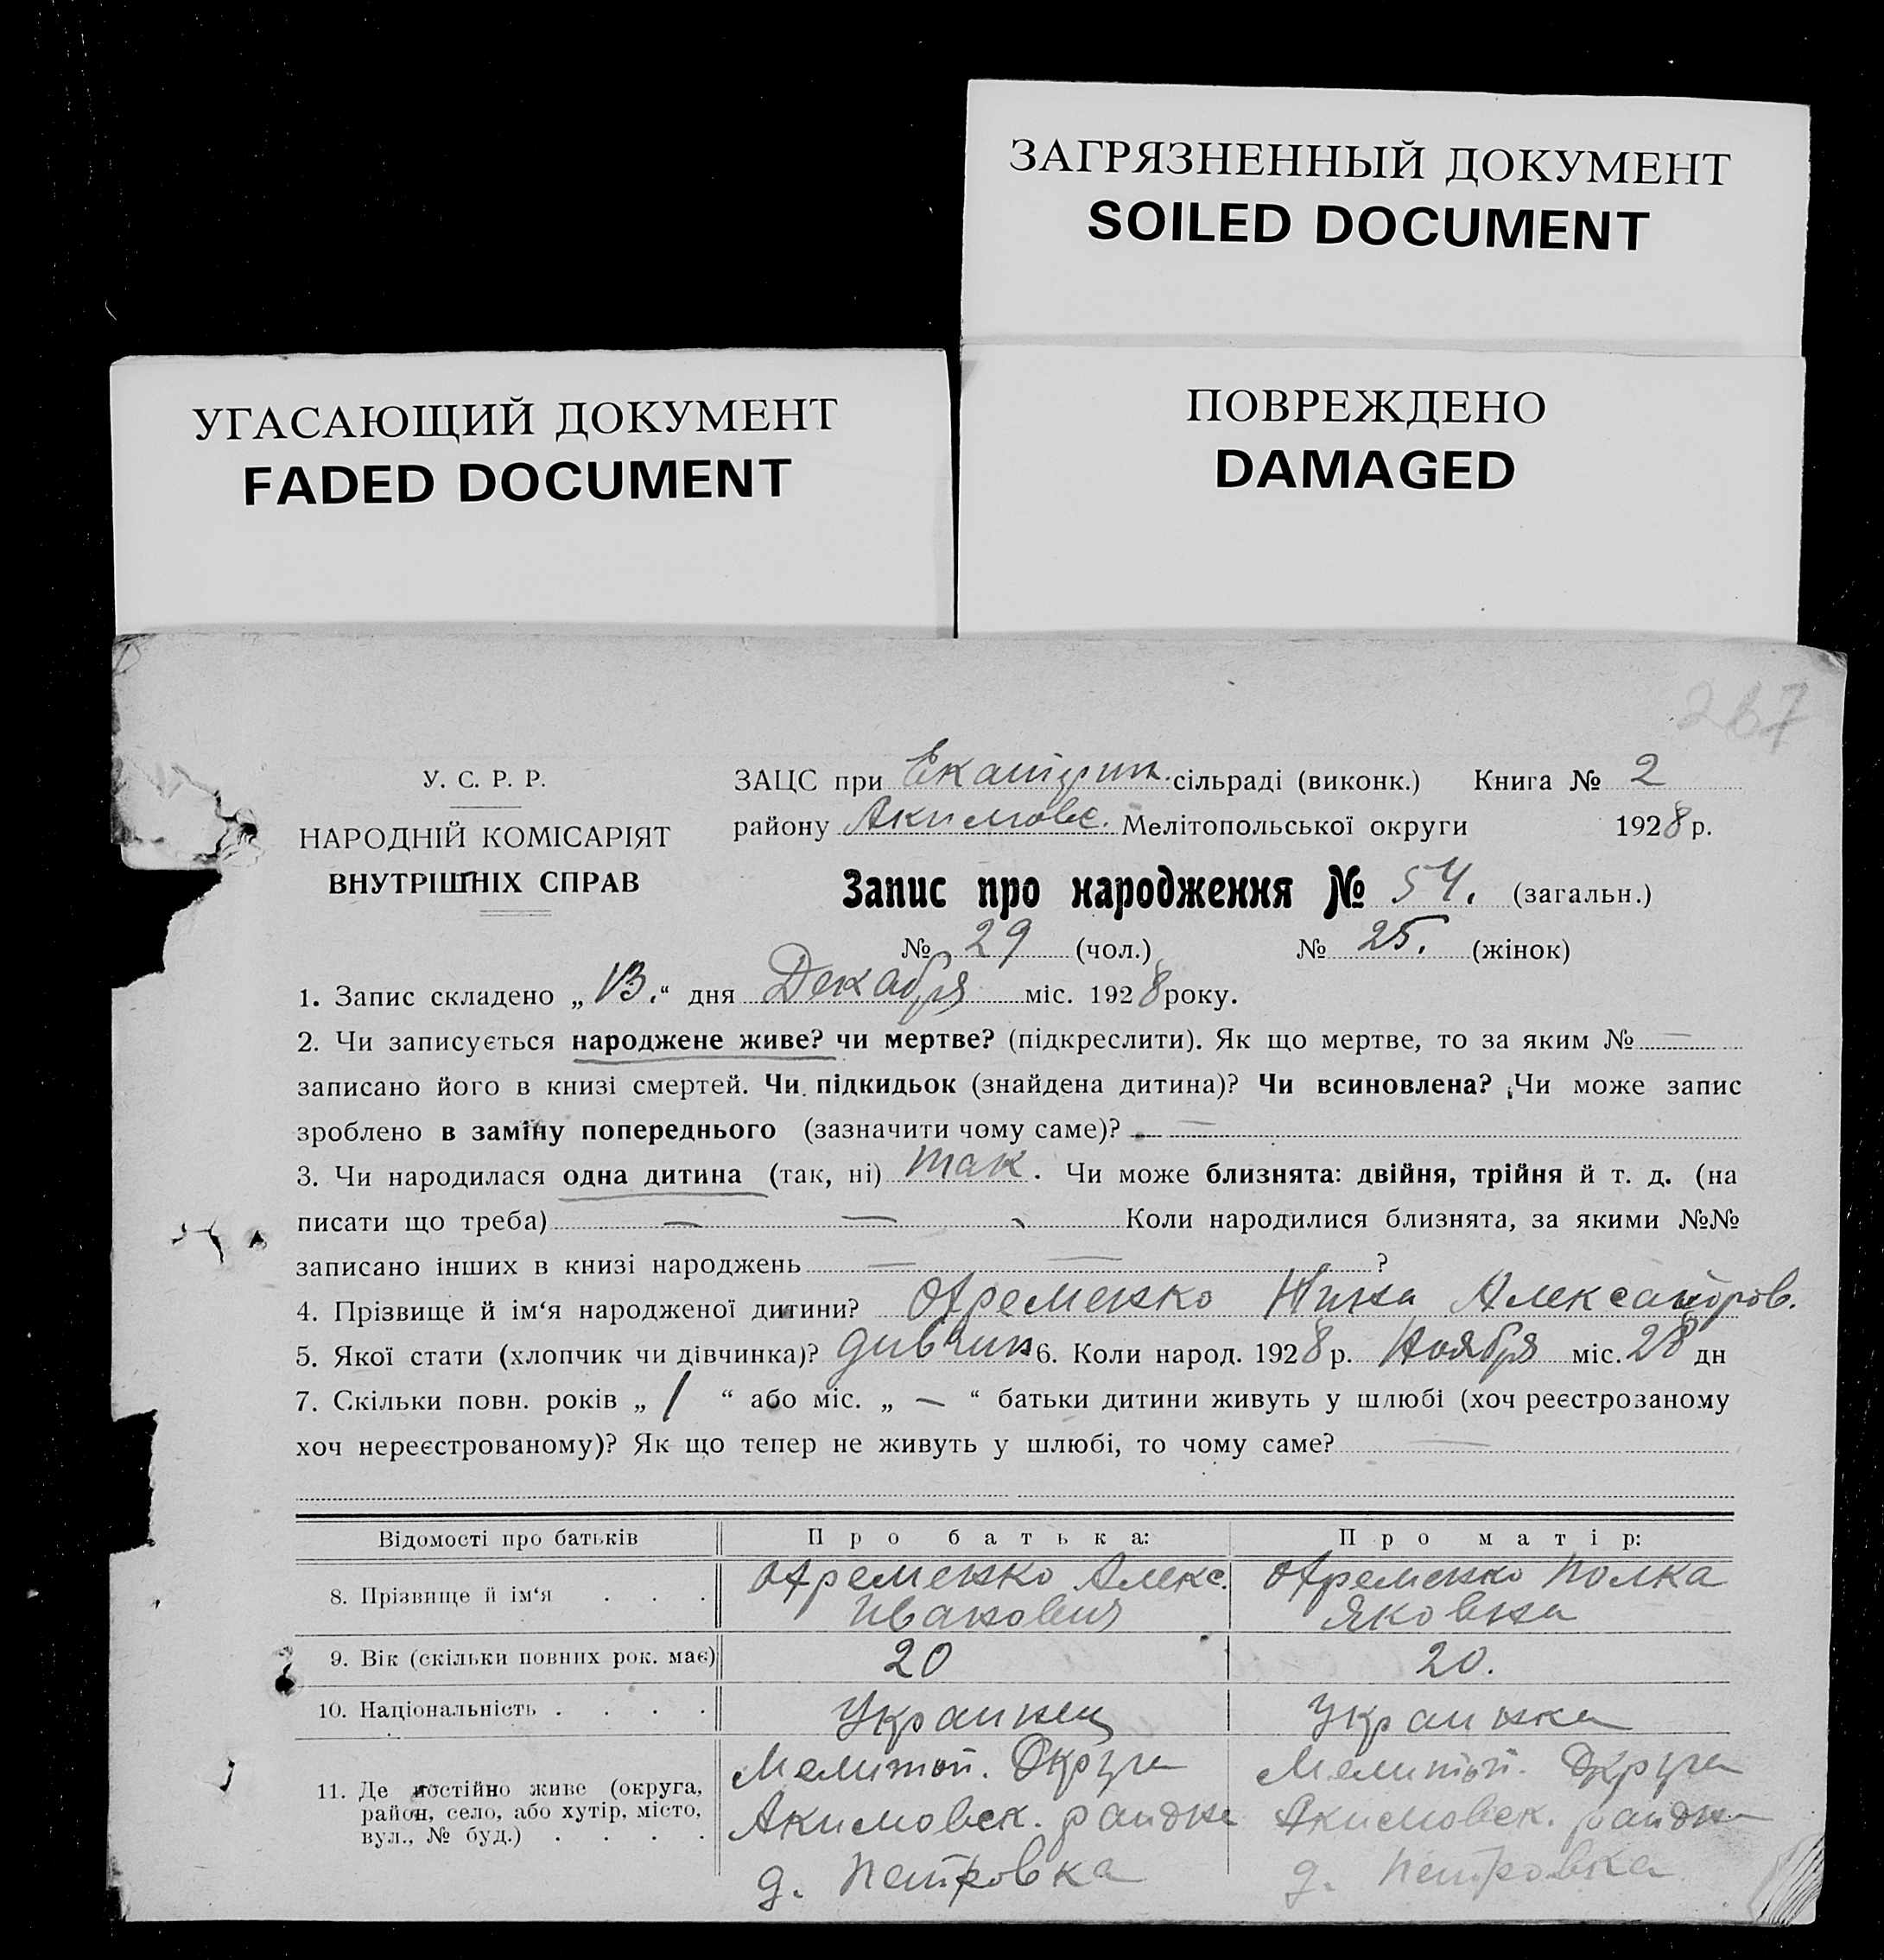 ЗАГРЯЗНЕННЫЙ ДОКУМЕНТ
SOILED DOCUMENT
УГАСАЮЩИЙ ДОКУМЕНТ
FADED DOCUMENT
ПОВРЕЖДЕНО
DAMAGED
267
У. С. Р. Р.
НАРОДНІЙ КОМІСАРІЯТ
ВНУТРІШНІХ СПРАВ
ЗАЦС при Екатерин. сільраді (виконк.) Книга № 2
району Акимовс. Мелітопольської округи 1928 р.
Запис про народження № 54. (загальн.)
№ 29 (чол.) № 25. (жінок)
1. Запис складено „13.“ дня Декабря міс. 1928 року.
2. Чи записується народжене живе? чи мертве? (підкреслити). Як що мертве, то за яким № —
записано його в книзі смертей. Чи підкидьок (знайдена дитина)? Чи всиновлена? Чи може запис
зроблено в заміну попереднього (зазначити чому саме)? — —
3. Чи народилася одна дитина (так, ні) так. Чи може близнята: двійня, трійня й т. д. (на
писати що треба) — — Коли народилися близнята, за якими №№
записано інших в книзі народжень — — ?
4. Прізвище й ім‘я народженої дитини? Ефременко Нина Александров.
5. Якої стати (хлопчик чи дівчинка)? дивчин 6. Коли народ. 1928 р. Ноября міс. 28 дн
7. Скільки повн. років „ 1 “ або міс. „ — “ батьки дитини живуть у шлюбі (хоч реєстрозаному
хоч нереєстрованому)? Як що тепер не живуть у шлюбі, то чому саме? —
Відомості про батьків Про батька: Про матір:
8. Прізвище й ім‘я . . . Ефременко Алекс. Ефременко Полка
Иванович Яковвна
9. Вік (скільки повних рок. має) 20 20.
10. Національність . . . . Украинец Украинка
11. Де постійно живе (округа, район, село, або хутір, місто, вул., № буд.) . . . .
Мелитоп. Округа Мелитоп. Округа
Акимовск. района Акимовск. района
д. Петровка д. Петровка